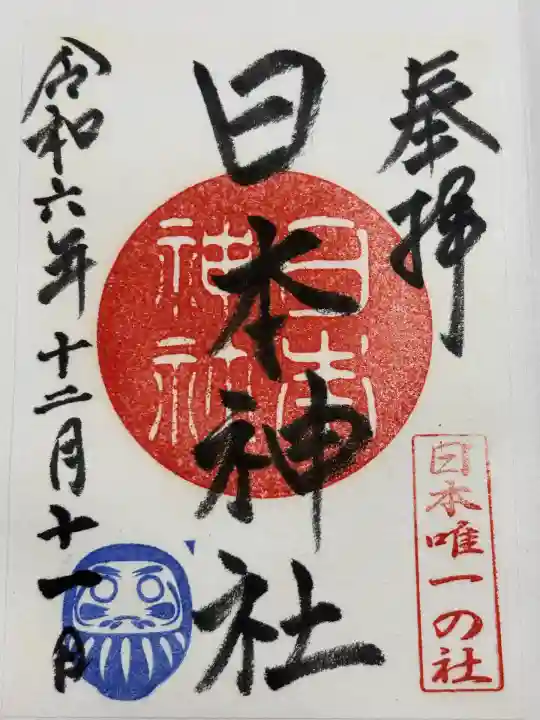 奉拝
日本唯一の社
日本神社
日本
神社
令和六年十二月十一日